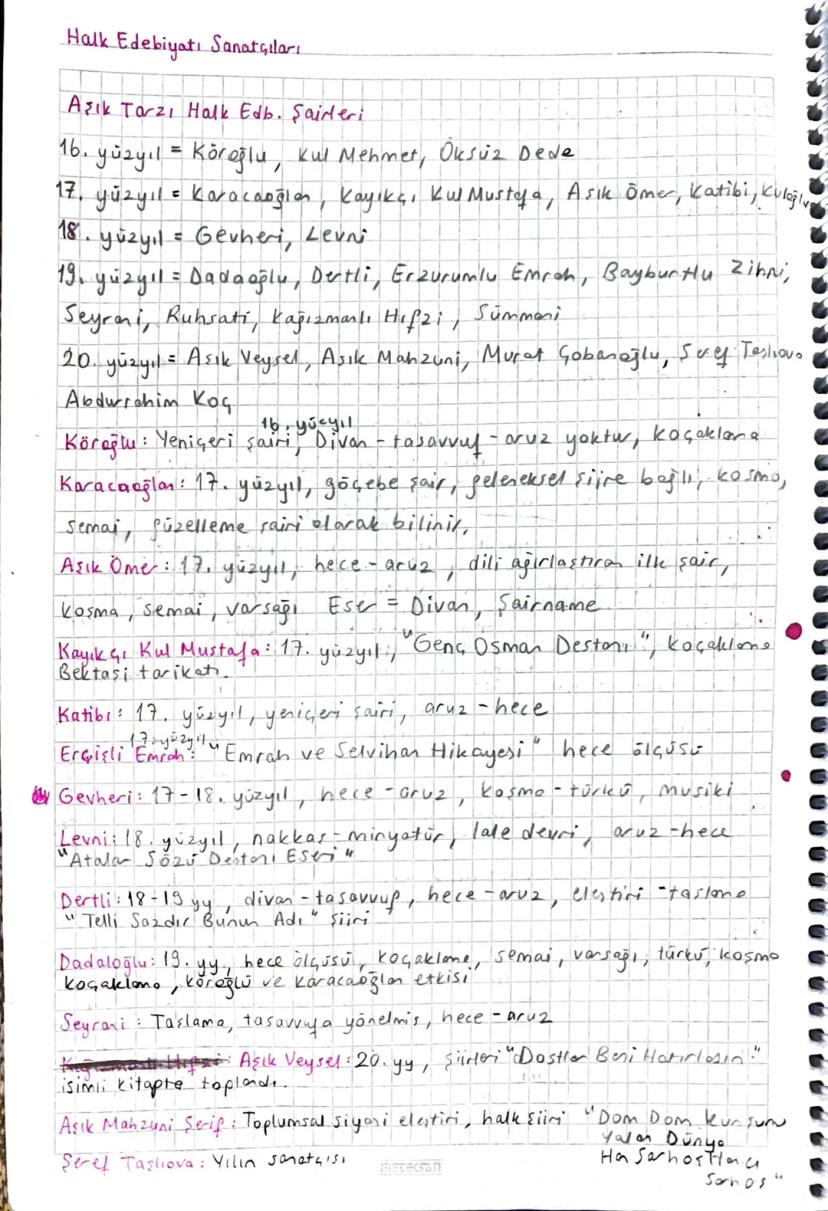 Halk Edebiyatı Sanatçıları
Aşık Tarzı Halk Edb. Şairleri
16. yüzyıl = Köroğlu, Kul Mehmet, Öksüz Dede
17. yüzyıl = Karacaoğlan, Kayıkçı Kul Mustafa, Aşık Ömer, Katibi, Kuloğlu
18. yüzyıl = Gevheri, Levni
19. yüzyıl = Dadaoğlu, Dertli, Erzurumlu Emrah, Bayburtlu Zihni,
Seyrani, Ruhsati, Kağızmanlı Hıfzi, Sümmani
20. yüzyıl = Aşık Veysel, Aşık Mahzuni, Murat Çobanoğlu, Şeref Taşlıova
Abdurrahim Koç
16. yüzyıl
Köroğlu: Yeniçeri şairi, Divan - tasavvuf - aruz yoktur, koçaklama
Karacaoğlan: 17. yüzyıl, göçebe şair, geleneksel şiire bağlı, koşma,
semai, güzelleme şairi olarak bilinir.
Aşık Ömer: 17. yüzyıl, hece - aruz, dili ağırlaştıran ilk şair,
koşma, semai, varsağı Eser = Divan, Şairname
Kayıkçı Kul Mustafa: 17. yüzyıl, "Genç Osman Destanı", koçaklama
Bektaşi tarikatı.
Katibi: 17. yüzyıl, yeniçeri şairi, aruz - hece
17. yüzyıl
Ercişli Emrah: "Emrah ve Selvihan Hikayesi" hece ölçüsü
Gevheri: 17-18. yüzyıl, hece - aruz, koşma - türkü, musiki
Levni: 18. yüzyıl, nakkaş - minyatür, lale devri, aruz - hece
"Atalar Sözü Destanı Eseri"
Dertli: 18-19 yy, divan - tasavvup, hece - aruz, eleştiri - taşlama
"Telli Sazdır Bunun Adı" şiiri
Dadaloğlu: 19. yy, hece ölçüsü, koçaklama, semai, varsağı, türkü, koşma
koçaklama, köroğlu ve karacaoğlan etkisi
Seyrani: Taşlama, tasavvufa yönelmiş, hece - aruz
Aşık Veysel: 20. yy, şiirleri "Dostlar Beni Hatırlasın."
isimli kitapta toplandı.
Aşık Mahzuni Şerif: Toplumsal siyasi eleştiri, halk şiiri "Dom Dom Kurşunu
Yalan Dünya
Şeref Taşlıova: Yılın sanatçısı
meteksan